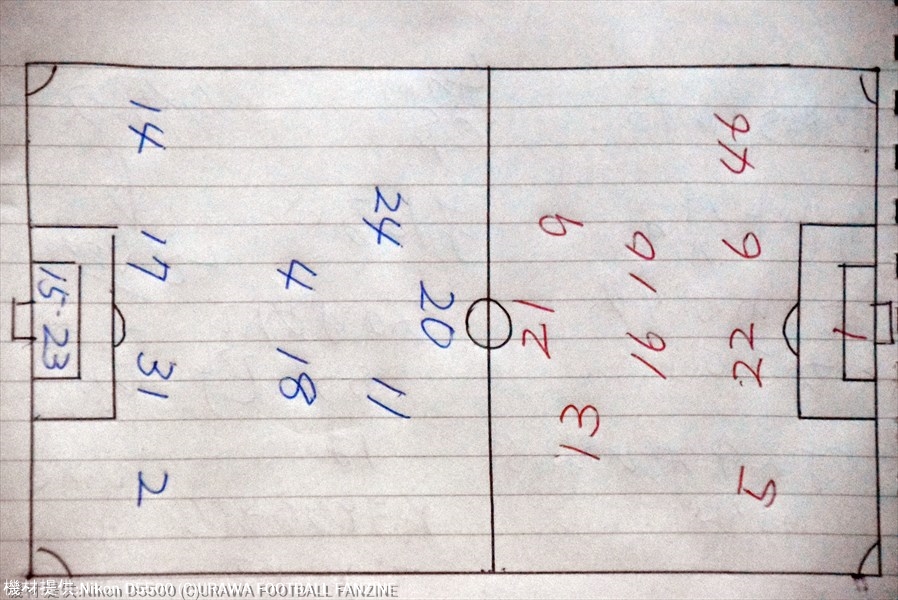 14
17
31
2
15·23
4
18
24
20
11
46
6
22
5
10
16
9
21
13
1
機材提供:Nikon D5500 (C)URAWA FOOTBALL FANZINE